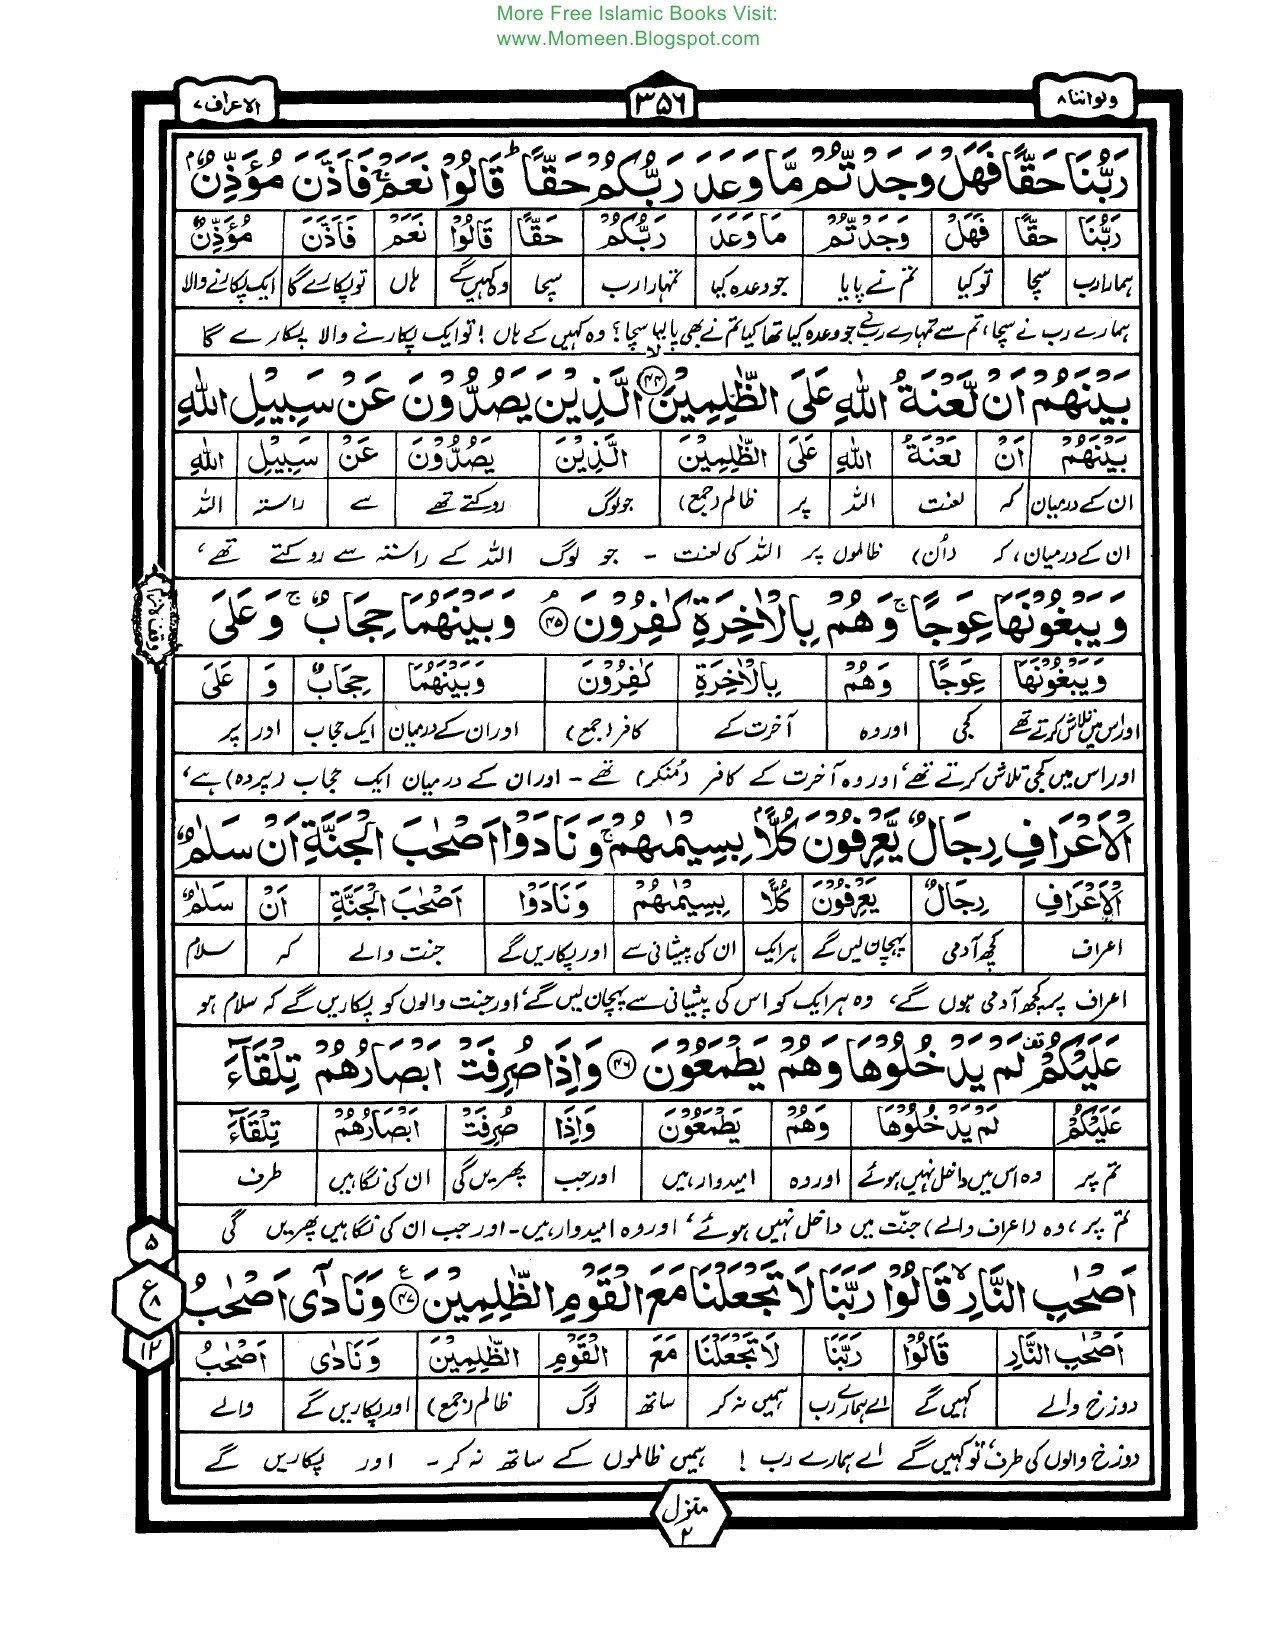 More Free Islamic Books Visit:
www.Momeen.Blogspot.com
ولواننا ۸
۳۵۶
الاعراف ۷
رَبُّنَا حَقًّا فَهَلْ وَجَدْتُّمْ مَّا وَعَدَ رَبُّكُمْ حَقًّا ؕ قَالُوْا نَعَمْ ۚ فَاَذَّنَ مُؤَذِّنٌۢ
رَبُّنَا | حَقًّا | فَهَلْ | وَجَدْتُّمْ | مَا وَعَدَ | رَبُّكُمْ | حَقًّا | قَالُوْا | نَعَمْ | فَاَذَّنَ | مُؤَذِّنٌ
ہمارا رب | سچا | تو کیا | تم نے پایا | جو وعدہ کیا | تمہارا رب | سچا | وہ کہیں گے | ہاں | تو پکارے گا | ایک پکارنے والا
ہمارے رب نے سچا، تم سے تمہارے رب نے جو وعدہ کیا تھا کیا تم نے بھی پا لیا سچا؟ وہ کہیں گے ہاں ! تو ایک پکارنے والا پکارے گا
بَيْنَهُمْ اَنْ لَّعْنَةُ اللّٰهِ عَلَى الظّٰلِمِيْنَ ﴿۴۴﴾ۙ الَّذِيْنَ يَصُدُّوْنَ عَنْ سَبِيْلِ اللّٰهِ
بَيْنَهُمْ | اَنْ | لَعْنَةُ | اللّٰهِ | عَلَى | الظّٰلِمِيْنَ | الَّذِيْنَ | يَصُدُّوْنَ | عَنْ | سَبِيْلِ | اللّٰهِ
ان کے درمیان | کہ | لعنت | اللہ | پر | ظالم (جمع) | جو لوگ | روکتے تھے | سے | راستہ | اللہ
ان کے درمیان، کہ (اُن) ظالموں پر اللہ کی لعنت - جو لوگ اللہ کے راستہ سے روکتے تھے،
وَيَبْغُوْنَهَا عِوَجًا ۚ وَهُمْ بِالْاٰخِرَةِ كٰفِرُوْنَ ﴿۴۵﴾ۘ وَبَيْنَهُمَا حِجَابٌ ۚ وَعَلَى
وَيَبْغُوْنَهَا | عِوَجًا | وَهُمْ | بِالْاٰخِرَةِ | كٰفِرُوْنَ | وَبَيْنَهُمَا | حِجَابٌ | وَ | عَلَى
اور اس میں تلاش کرتے تھے | کجی | اور وہ | آخرت کے | کافر (جمع) | اور ان کے درمیان | ایک حجاب | اور | پر
اور اس میں کجی تلاش کرتے تھے، اور وہ آخرت کے کافر (مُنکر) تھے - اور ان کے درمیان ایک حجاب (پردہ) ہے،
الْاَعْرَافِ رِجَالٌ يَّعْرِفُوْنَ كُلًّاۢ بِسِيْمٰىهُمْ ۚ وَنَادَوْا اَصْحٰبَ الْجَنَّةِ اَنْ سَلٰمٌ
الْاَعْرَافِ | رِجَالٌ | يَعْرِفُوْنَ | كُلًّا | بِسِيْمٰىهُمْ | وَنَادَوْا | اَصْحٰبَ الْجَنَّةِ | اَنْ | سَلٰمٌ
اعراف | کچھ آدمی | پہچان لیں گے | ہر ایک | ان کی پیشانی سے | اور پکاریں گے | جنت والے | کہ | سلام
اعراف پر کچھ آدمی ہوں گے، وہ ہر ایک کو اس کی پیشانی سے پہچان لیں گے، اور جنت والوں کو پکاریں گے کہ سلام ہو
عَلَيْكُمْ ۟ لَمْ يَدْخُلُوْهَا وَهُمْ يَطْمَعُوْنَ ﴿۴۶﴾ وَاِذَا صُرِفَتْ اَبْصَارُهُمْ تِلْقَآءَ
عَلَيْكُمْ | لَمْ يَدْخُلُوْهَا | وَهُمْ | يَطْمَعُوْنَ | وَاِذَا | صُرِفَتْ | اَبْصَارُهُمْ | تِلْقَآءَ
تم پر | وہ اس میں داخل نہیں ہوئے | اور وہ | امیدوار ہیں | اور جب | پھریں گی | ان کی نگاہیں | طرف
تم پر، وہ (اعراف والے) جنّت میں داخل نہیں ہوئے، اور وہ امیدوار ہیں - اور جب ان کی نگاہیں پھریں گی
اَصْحٰبِ النَّارِ ۙ قَالُوْا رَبَّنَا لَا تَجْعَلْنَا مَعَ الْقَوْمِ الظّٰلِمِيْنَ ﴿۴۷﴾ وَنَادٰٓى اَصْحٰبُ
اَصْحٰبِ النَّارِ | قَالُوْا | رَبَّنَا | لَا تَجْعَلْنَا | مَعَ | الْقَوْمِ | الظّٰلِمِيْنَ | وَنَادٰى | اَصْحٰبُ
دوزخ والے | کہیں گے | اے ہمارے رب | ہمیں نہ کر | ساتھ | لوگ | ظالم (جمع) | اور پکاریں گے | والے
دوزخ والوں کی طرف، تو کہیں گے اے ہمارے رب ! ہمیں ظالموں کے ساتھ نہ کر - اور پکاریں گے
۵
ع
۸
۱۲
منزل
۲